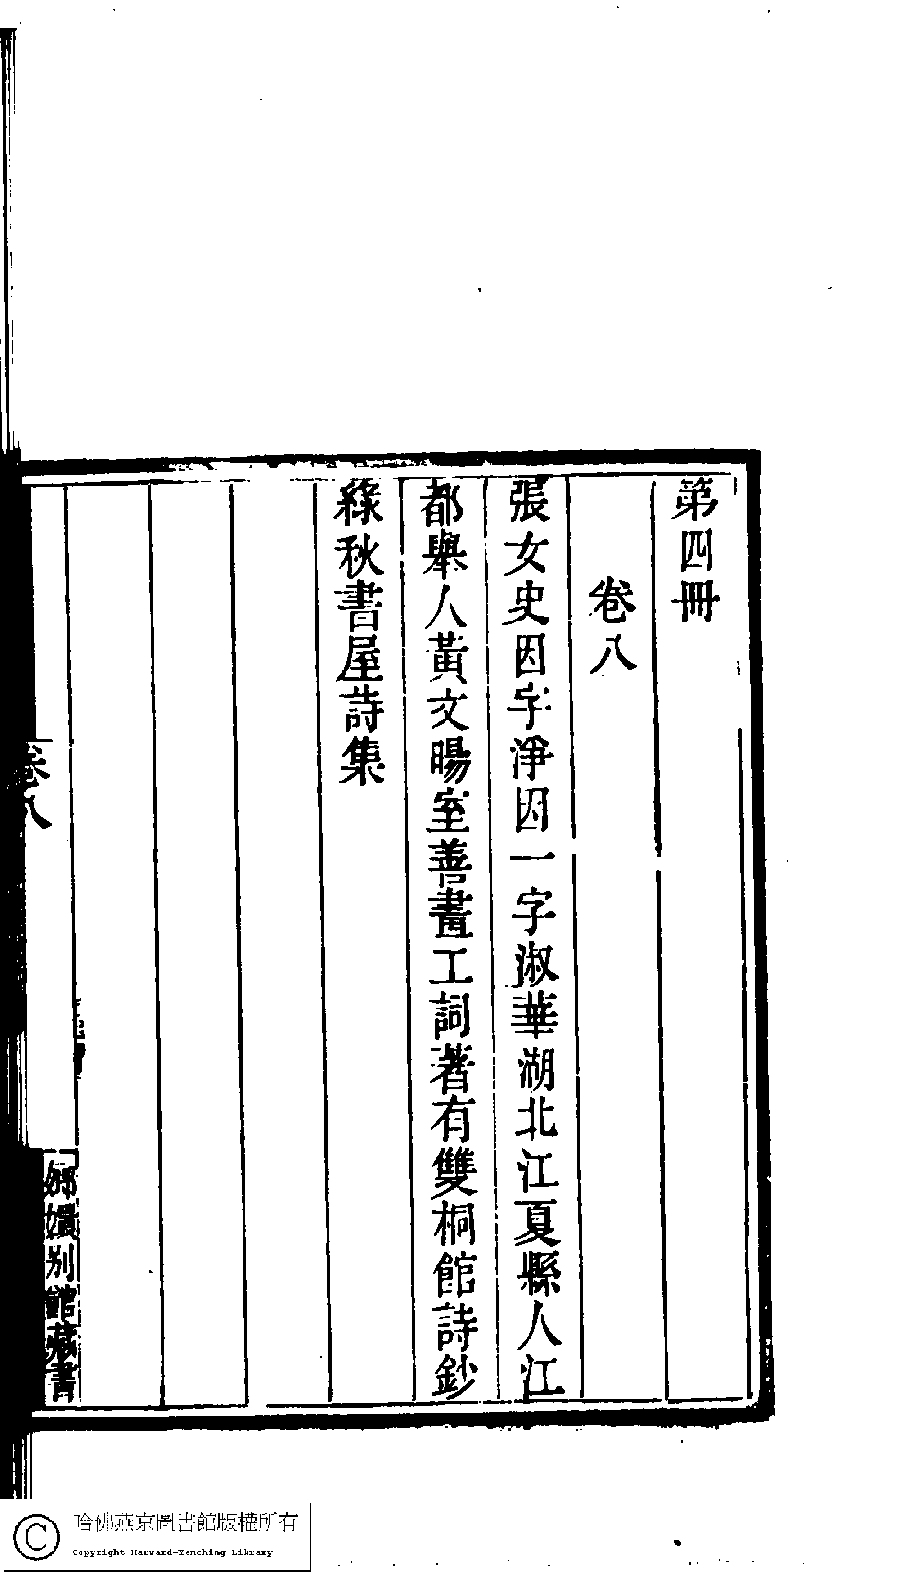 第四冊
卷八
張女史因字淨因一字淑華湖北江夏縣人江
都舉人黃文暘室善畫工詞著有雙桐館詩鈔
綠秋書屋詩集
卷八
嫏嬛別館藏書
哈佛燕京圖書館版權所有
Copyright Harvard-Yenching Library